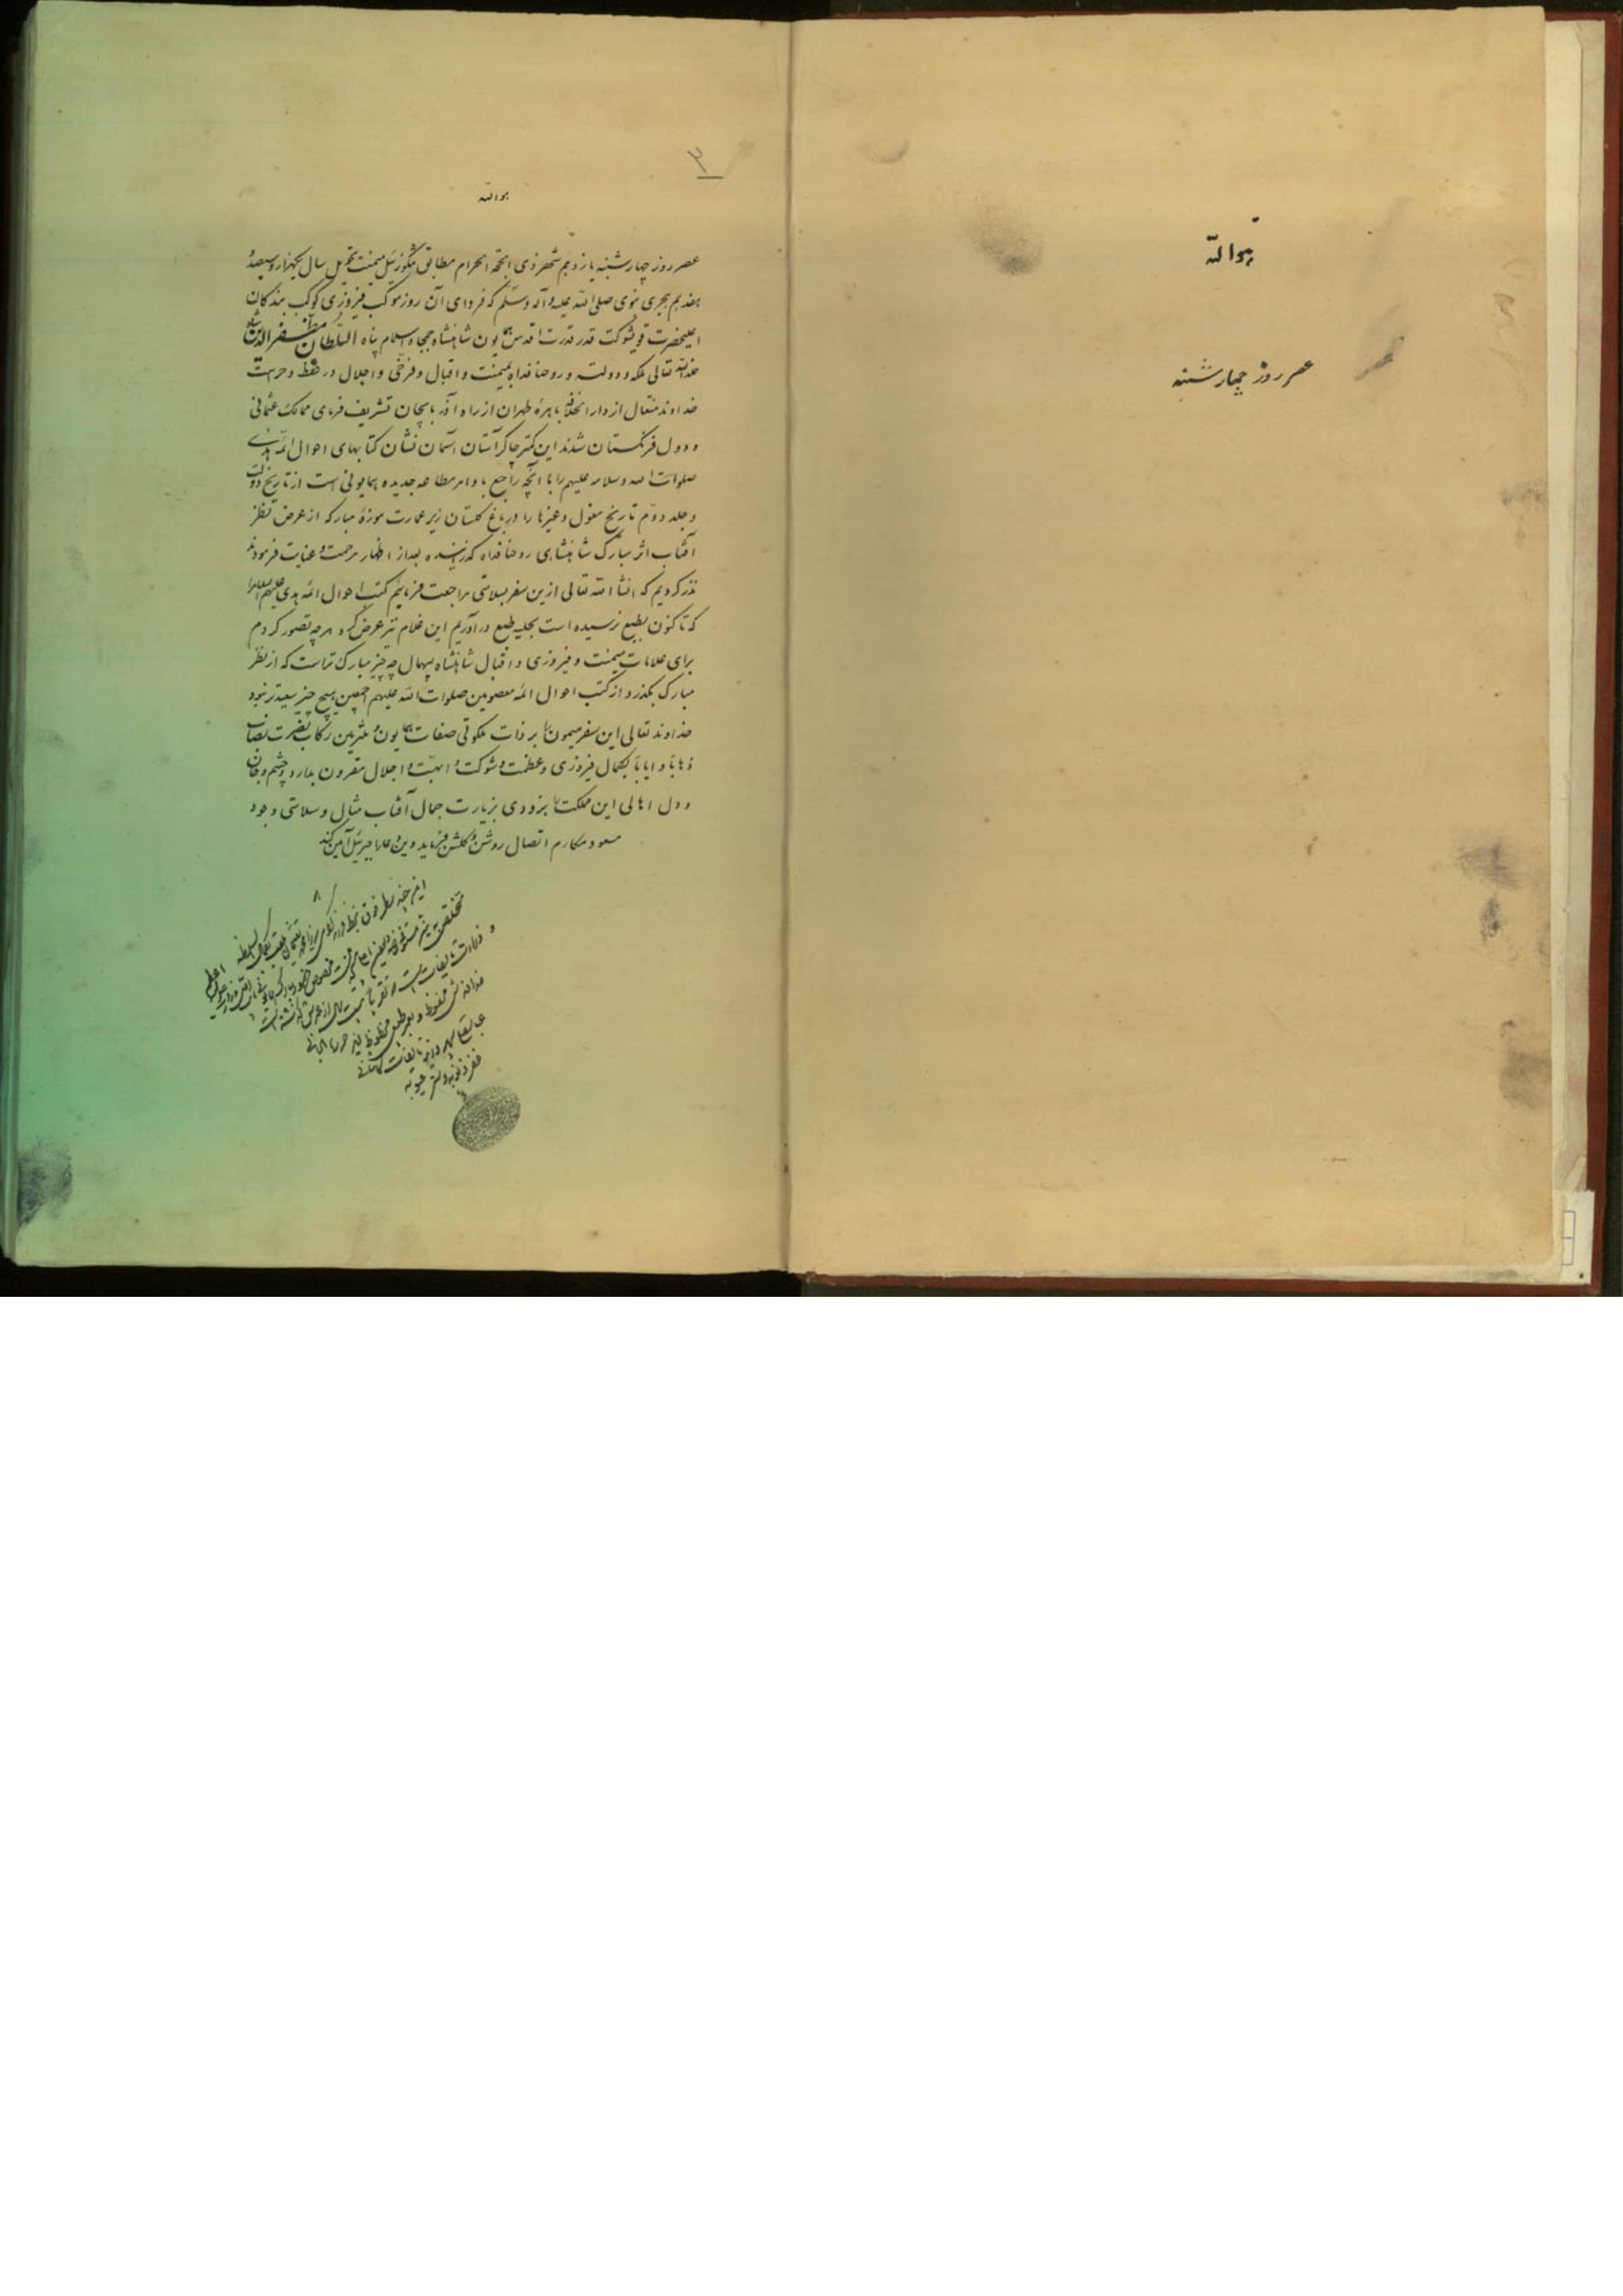 هوالله
عصر روز چهارشنبه
۳
هوالله
عصر روز چهارشنبه یازدهم شهر ذی الحجة الحرام مطابق تنگوزئیل میمنت تحویل سال یکهزار و سیصد و
هفدهم هجری نبوی صلی الله علیه وآله وسلم که فردای آن روز موکب فیروزی کوکب بندگان
اعلیحضرت قویشوکت قدر قدرت اقدس همایون شاهنشاه جمجاه اسلام پناه السلطان مظفرالدین شاه
خلدالله تعالی ملکه و دولته و روحنا فداه بمیمنت و اقبال و فرخی و اجلال در حفظ و حراست
خداوند متعال از دارالخلافه باهره طهران از راه آذربایجان تشریف فرمای ممالک عثمانی
و دول فرنگستان شدند این کمتر چاکر آستان آسمان نشان کتابهای احوال ائمه هدی
صلوات الله وسلامه علیهم را با آنچه راجع باوامر مطاعه جدیده همایونی است از تاریخ دولت
و جلد دوم تاریخ مغول و غیرها را در باغ گلستان زیر عمارت موزۀ مبارکه از عرض نظر
آفتاب اثر مبارک شاهنشاهی روحنا فداه گذرانیده بعد از اظهار مرحمت و عنایت فرمودند
نذر کردیم که انشاالله تعالی ازین سفر بسلامتی مراجعت فرمائیم کتب احوال ائمه هدی علیهم السلام را
که تا کنون بطبع نرسیده است بحلیه طبع در آوریم این غلام نیز عرض کرد هر چه تصور کردم
برای علامات میمنت و فیروزی و اقبال شاهنشاه بیهمال چه چیز مبارک تر است که از نظر
مبارک بگذرد از کتب احوال ائمه معصومین صلوات الله علیهم اجمعین هیچ چیز سعیدتر نبود
خداوند تعالی این سفر میمون را بر ذات ملکوتی صفات همایون و ملتزمین رکاب نصرت نصاب
ذهاباً و ایاباً بکمال فیروزی و عظمت و شوکت و ابهت و اجلال مقرون بدارد و چشم و جان
و دل اهالی این مملکت را بزودی بزیارت جمال آفتاب مثال و سلامتی وجود
مسعود مکارم اتصال روشن و گلشن فرماید وین دعا را جبرئیل آمین کند